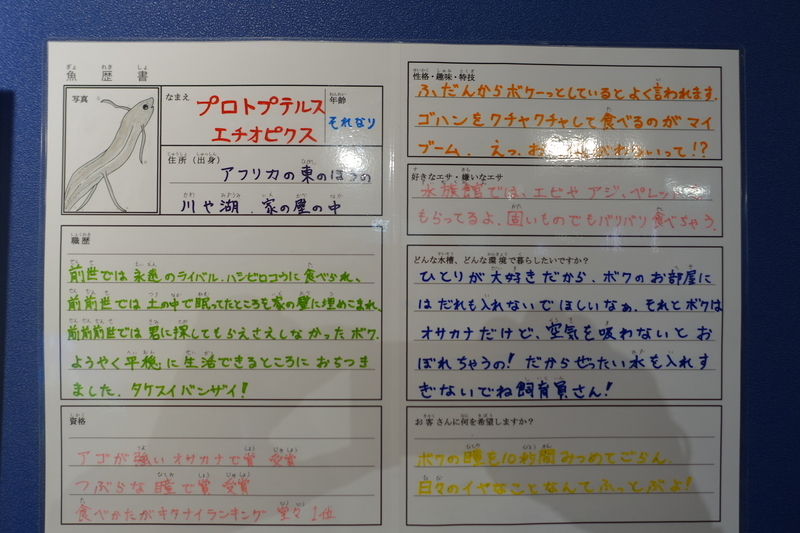 魚歴書
写真
なまえ
プロトプテルス
エチオピクス
年齢
それなり
住所（出身）
アフリカの東のほうの
川や湖、家の壁の中
職歴
前世では永遠のライバル、ハシビロコウに食べられ、
前前世では土の中で眠ってたところを家の壁に埋めこまれ、
前前前世では君に探してもらえさえしなかったボク。
ようやく平穏に生活できるところにおちつき
ました。タケスイバンザイ！
資格
アゴが強いオサカナで賞 受賞
つぶらな瞳で賞 受賞
食べかたがキタナイランキング 堂々1位
性格・趣味・特技
ふだんからボケーっとしているとよく言われます。
ゴハンをクチャクチャして食べるのがマイ
ブーム。えっ、お って!?
好きなエサ・嫌いなエサ
水族館では、エビやアジ、ペレット
もらってるよ。固いものでもバリバリ食べちゃう。
どんな水槽、どんな環境で暮らしたいですか？
ひとりが大好きだから、ボクのお部屋に
はだれも入れないでほしいなぁ。それとボクは
オサカナだけど、空気を吸わないとお
ぼれちゃうの！だからぜったい水も入れす
ぎないでね飼育員さん！
お客さんに何を希望しますか？
ボクの瞳を10秒間みつめてごらん。
日々のイヤなことなんてふっとぶよ！